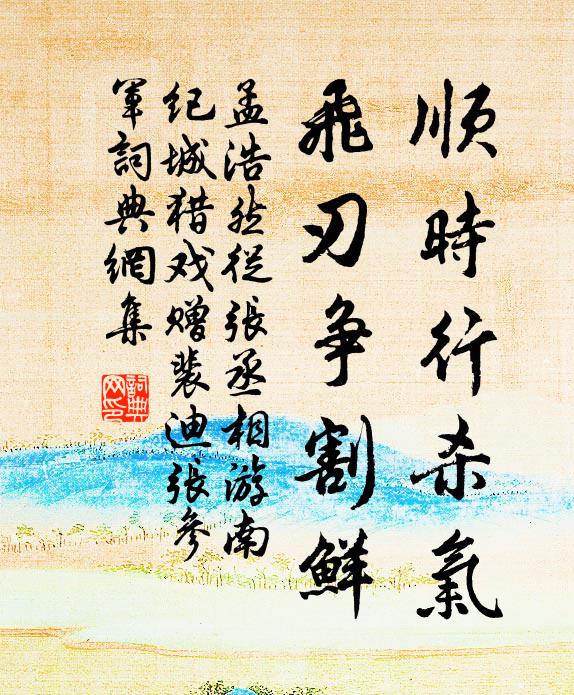 順時行杀氣
飛刃争割鮮
孟浩然從張丞相游南
纪城猎戏赠裴迪張參
軍詞典網集
詞典
网印